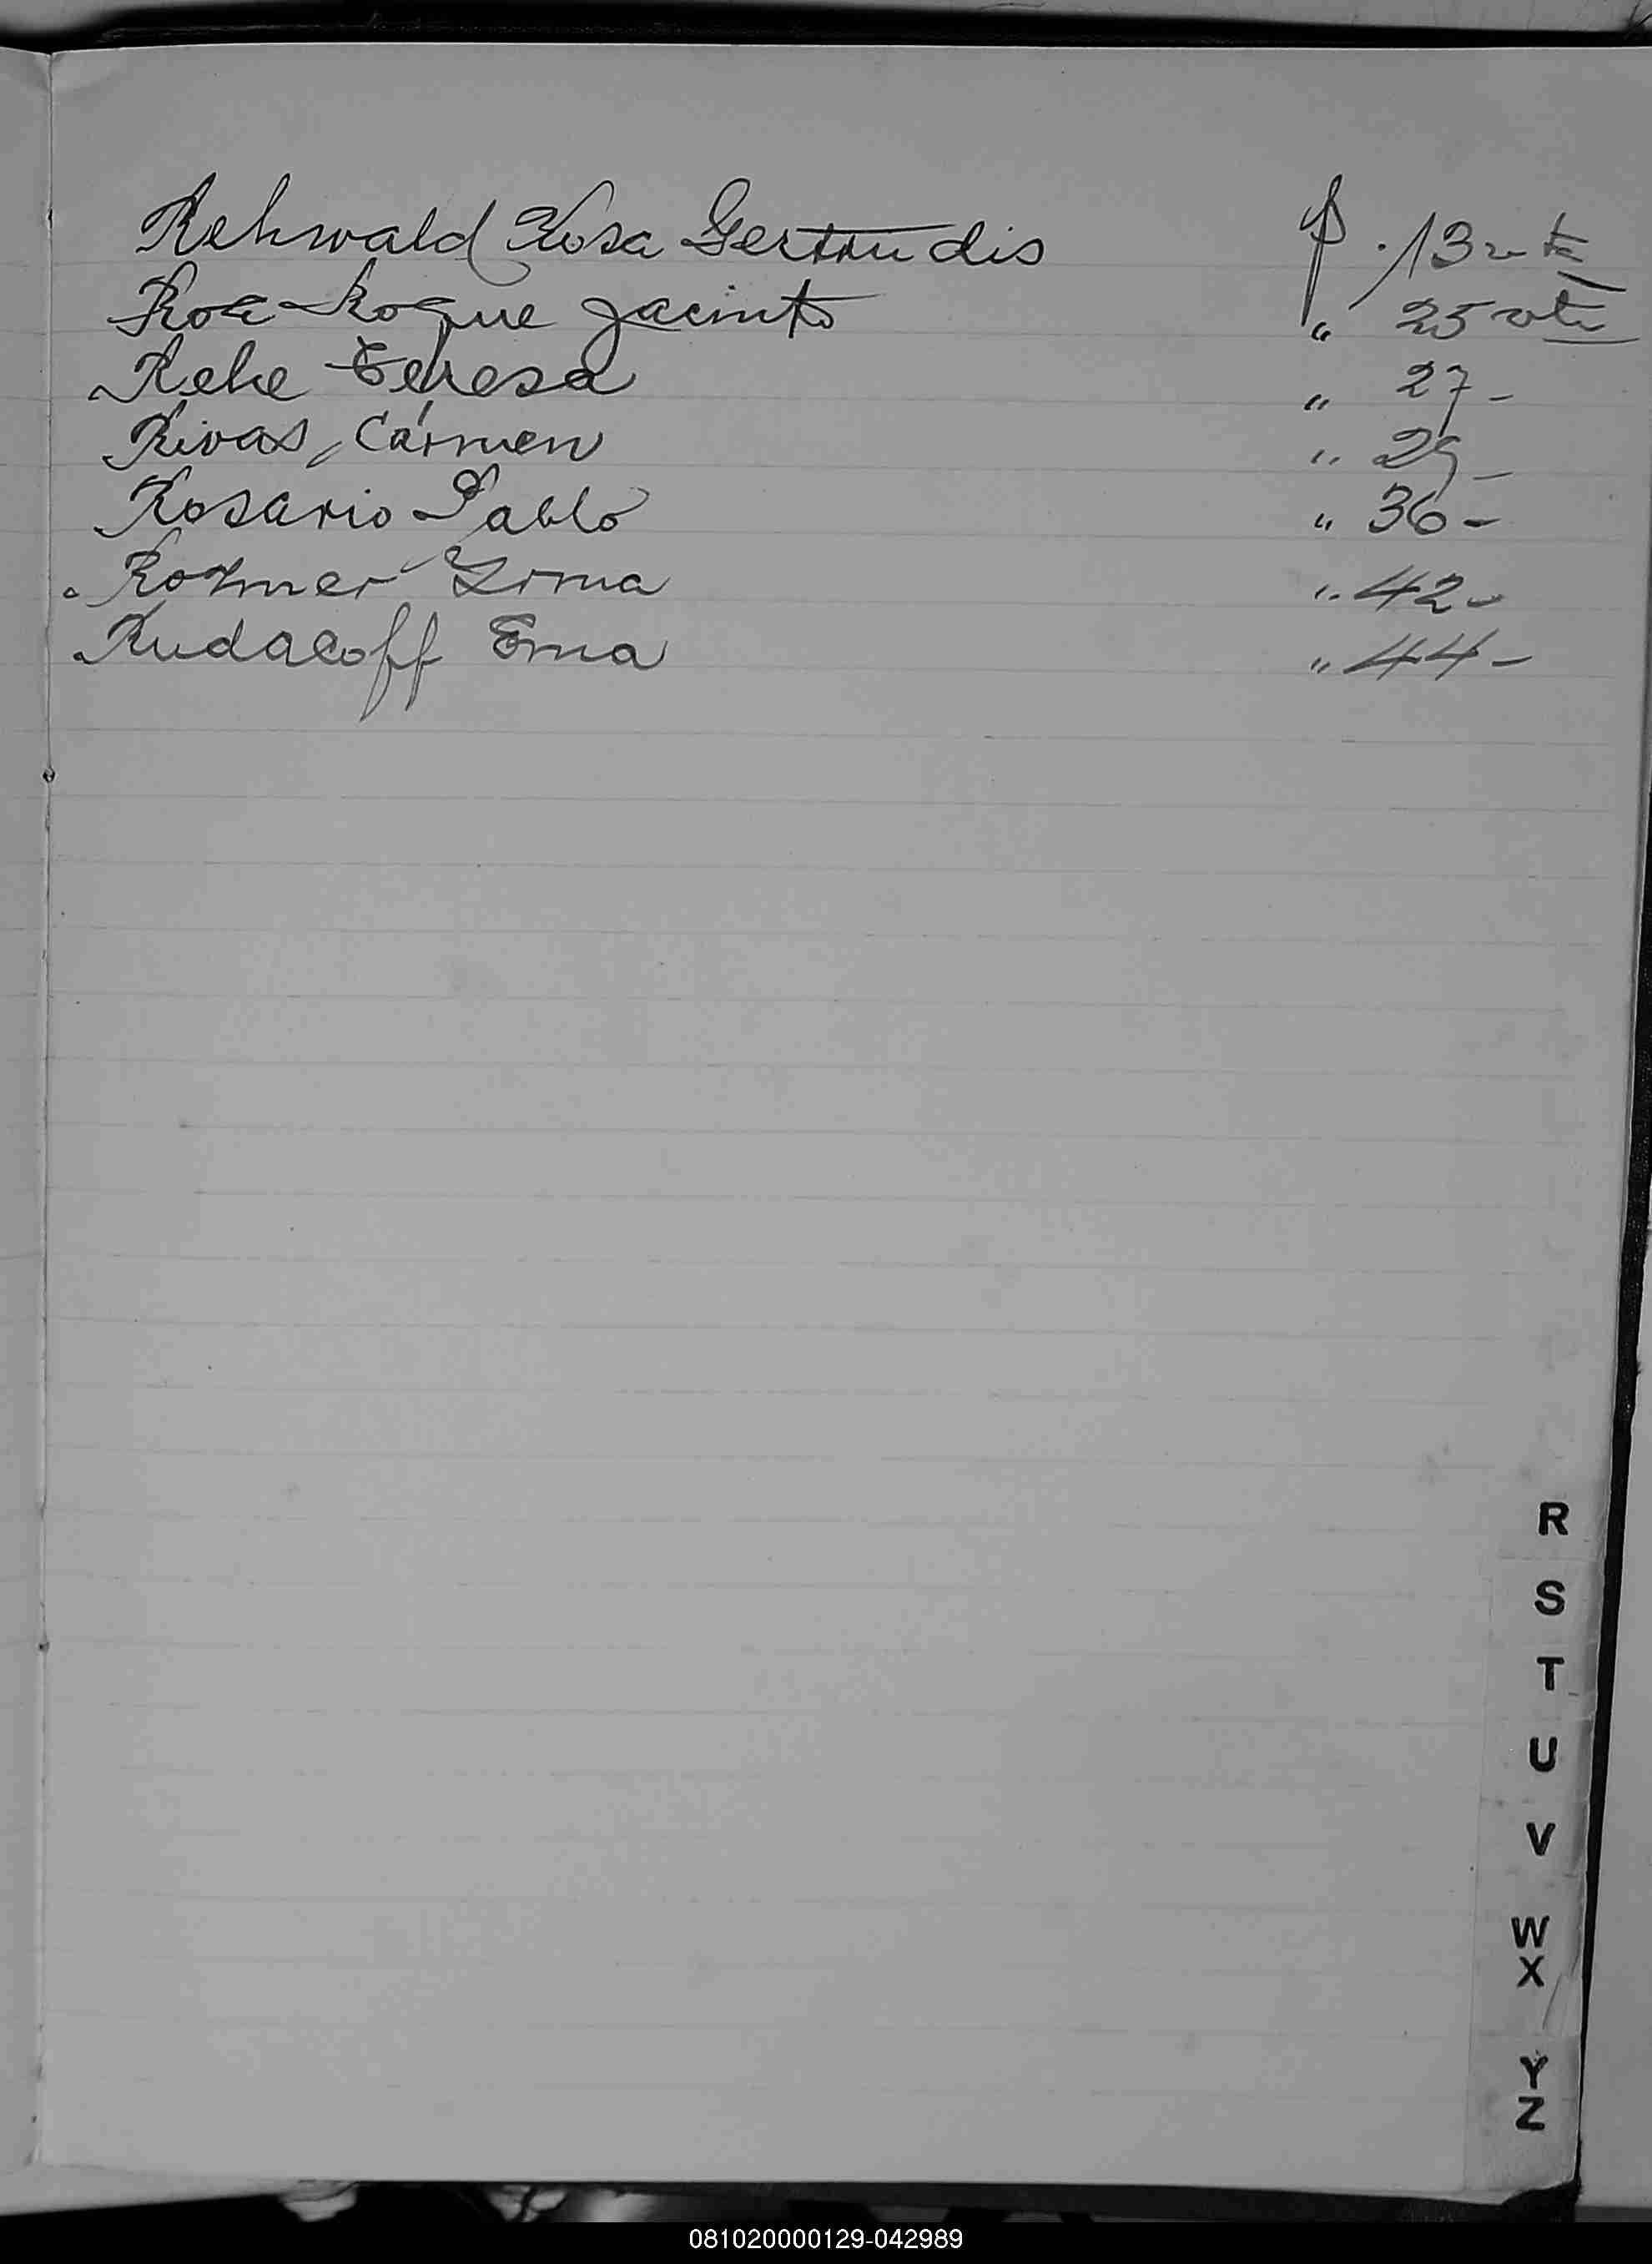 Rehwald Rosa Gertrudis f. 13 vta
Roa Roque Jacinto " 25 vta
Rehe Teresa " 27 -
Rivas, Carmen " 29 -
Rosario Pablo " 36 -
Rohmer Irma " 42 -
Rudacoff Ema " 44 -
R
S
T
U
V
W
X
Y
Z
081020000129-042989